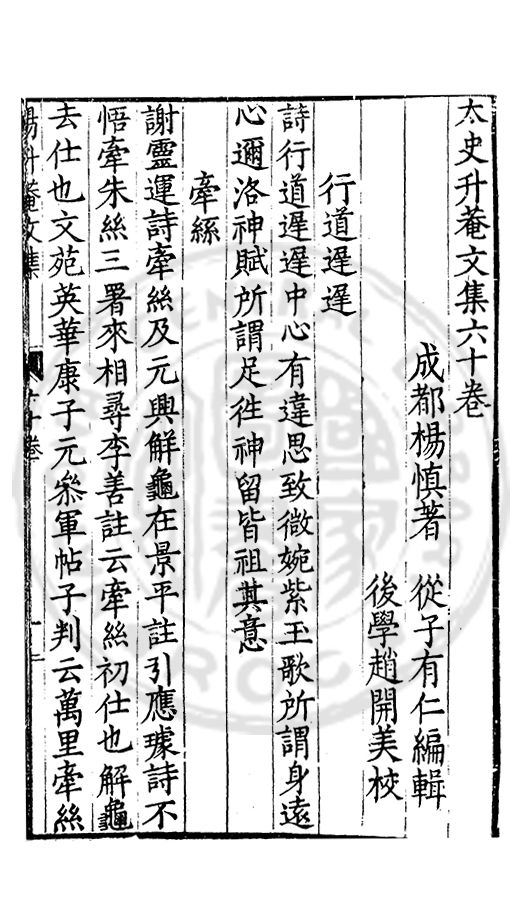 太史升菴文集六十卷
成都楊慎著 從子有仁編輯
後學趙開美校
行道遲遲
詩行道遲遲中心有違思致微婉紫玉歌所謂身遠
心邇洛神賦所謂足徃神留皆祖其意
牽絲
謝靈運詩牽絲及元興解龜在景平註引應璩詩不
悟牽朱絲三署來相尋李善註云牽絲初仕也解龜
去仕也文苑英華康子元叅軍帖子判云萬里牽絲
楊升菴文集
六十卷
一